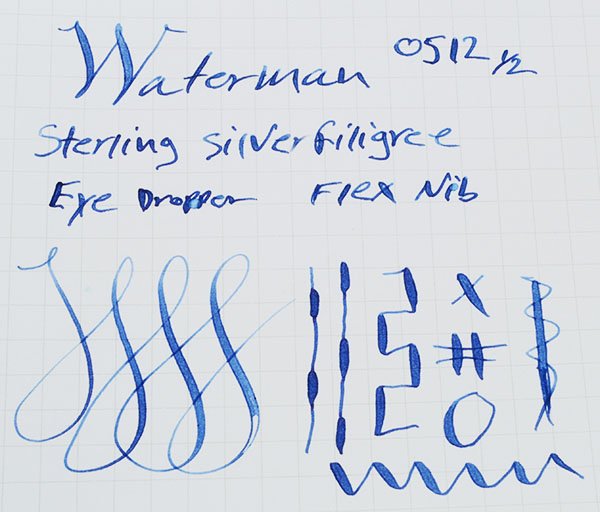 Waterman 0512 1/2
Sterling silver filigree
Eye Dropper Flex Nib